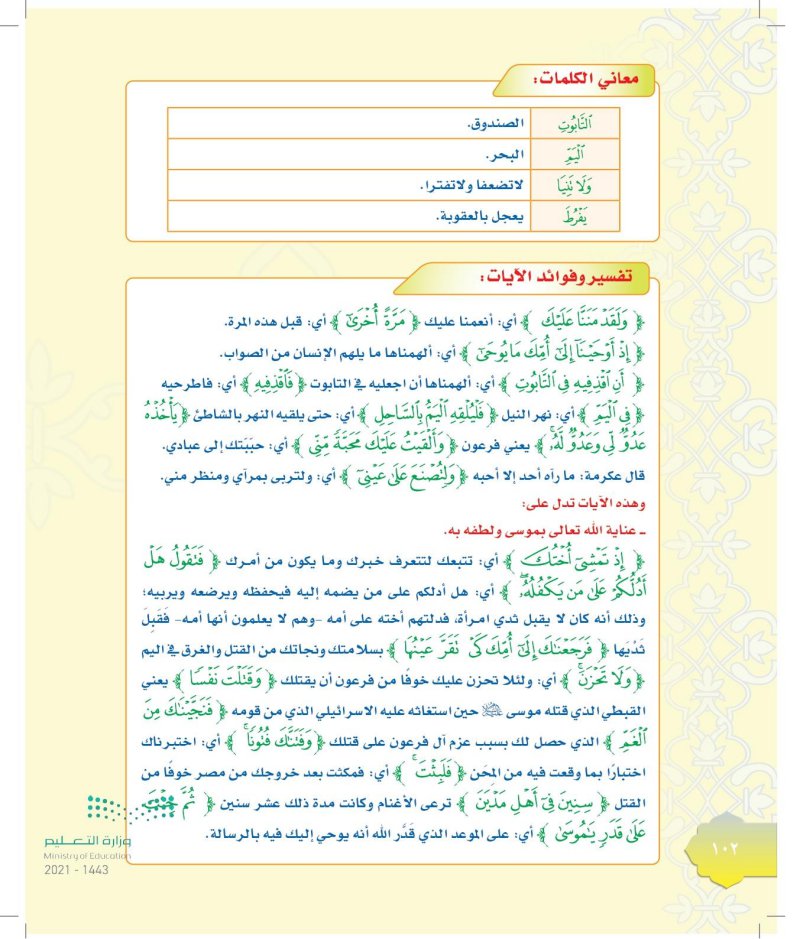 معاني الكلمات:
التَّابُوتِ الصندوق.
الْيَمِّ البحر.
وَلَا تَنِيَا لاتضعفا ولاتفترا.
يَفْرُطَ يعجل بالعقوبة.
تفسير وفوائد الآيات:
﴿ وَلَقَدْ مَنَنَّا عَلَيْكَ ﴾ أي: أنعمنا عليك ﴿ مَرَّةً أُخْرَىٰٓ ﴾ أي: قبل هذه المرة.
﴿ إِذْ أَوْحَيْنَآ إِلَىٰٓ أُمِّكَ مَا يُوحَىٰٓ ﴾ أي: ألهمناها ما يلهم الإنسان من الصواب.
﴿ أَنِ ٱقْذِفِيهِ فِي ٱلتَّابُوتِ ﴾ أي: ألهمناها أن اجعليه في التابوت ﴿ فَٱقْذِفِيهِ ﴾ أي: فاطرحيه
﴿ فِي ٱلْيَمِّ ﴾ أي: نهر النيل ﴿ فَلْيُلْقِهِ ٱلْيَمُّ بِٱلسَّاحِلِ ﴾ أي: حتى يلقيه النهر بالشاطئ ﴿ يَأْخُذْهُ
عَدُوٌّ لِّي وَعَدُوٌّ لَّهُۥۚ ﴾ يعني فرعون ﴿ وَأَلْقَيْتُ عَلَيْكَ مَحَبَّةً مِّنِّي ﴾ أي: حببتك إلى عبادي.
قال عكرمة: ما رآه أحد إلا أحبه ﴿ وَلِتُصْنَعَ عَلَىٰ عَيْنِيٓ ﴾ أي: ولتربى بمرآي ومنظر مني.
وهذه الآيات تدل على:
ـ عناية الله تعالى بموسى ولطفه به.
﴿ إِذْ تَمْشِيٓ أُخْتُكَ ﴾ أي: تتبعك لتتعرف خبرك وما يكون من أمرك ﴿ فَتَقُولُ هَلْ
أَدُلُّكُمْ عَلَىٰ مَن يَكْفُلُهُۥۖ ﴾ أي: هل أدلكم على من يضمه إليه فيحفظه ويرضعه ويربيه؛
وذلك أنه كان لا يقبل ثدي امرأة، فدلتهم أخته على أمه -وهم لا يعلمون أنها أمه- فقَبِلَ
ثدْيَها ﴿ فَرَجَعْنَٰكَ إِلَىٰٓ أُمِّكَ كَيْ تَقَرَّ عَيْنُهَا ﴾ بسلامتك ونجاتك من القتل والغرق في اليم
﴿ وَلَا تَحْزَنَۚ ﴾ أي: ولئلا تحزن عليك خوفًا من فرعون أن يقتلك ﴿ وَقَتَلْتَ نَفْسًا ﴾ يعني
القبطي الذي قتله موسى ﷺ حين استغاثه عليه الاسرائيلي الذي من قومه ﴿ فَنَجَّيْنَٰكَ مِنَ
ٱلْغَمِّ ﴾ الذي حصل لك بسبب عزم آل فرعون على قتلك ﴿ وَفَتَنَّٰكَ فُتُونًاۚ ﴾ أي: اختبرناك
اختبارًا بما وقعت فيه من المحَن ﴿ فَلَبِثْتَ ﴾ أي: فمكثت بعد خروجك من مصر خوفًا من
القتل ﴿ سِنِينَ فِيٓ أَهْلِ مَدْيَنَ ﴾ ترعى الأغنام وكانت مدة ذلك عشر سنين ﴿ ثُمَّ جِئْتَ
عَلَىٰ قَدَرٍ يَٰمُوسَىٰ ﴾ أي: على الموعد الذي قدَّر الله أنه يوحي إليك فيه بالرسالة.
وزارة التعليم
Ministry of Education
2021 - 1443
١٠٢